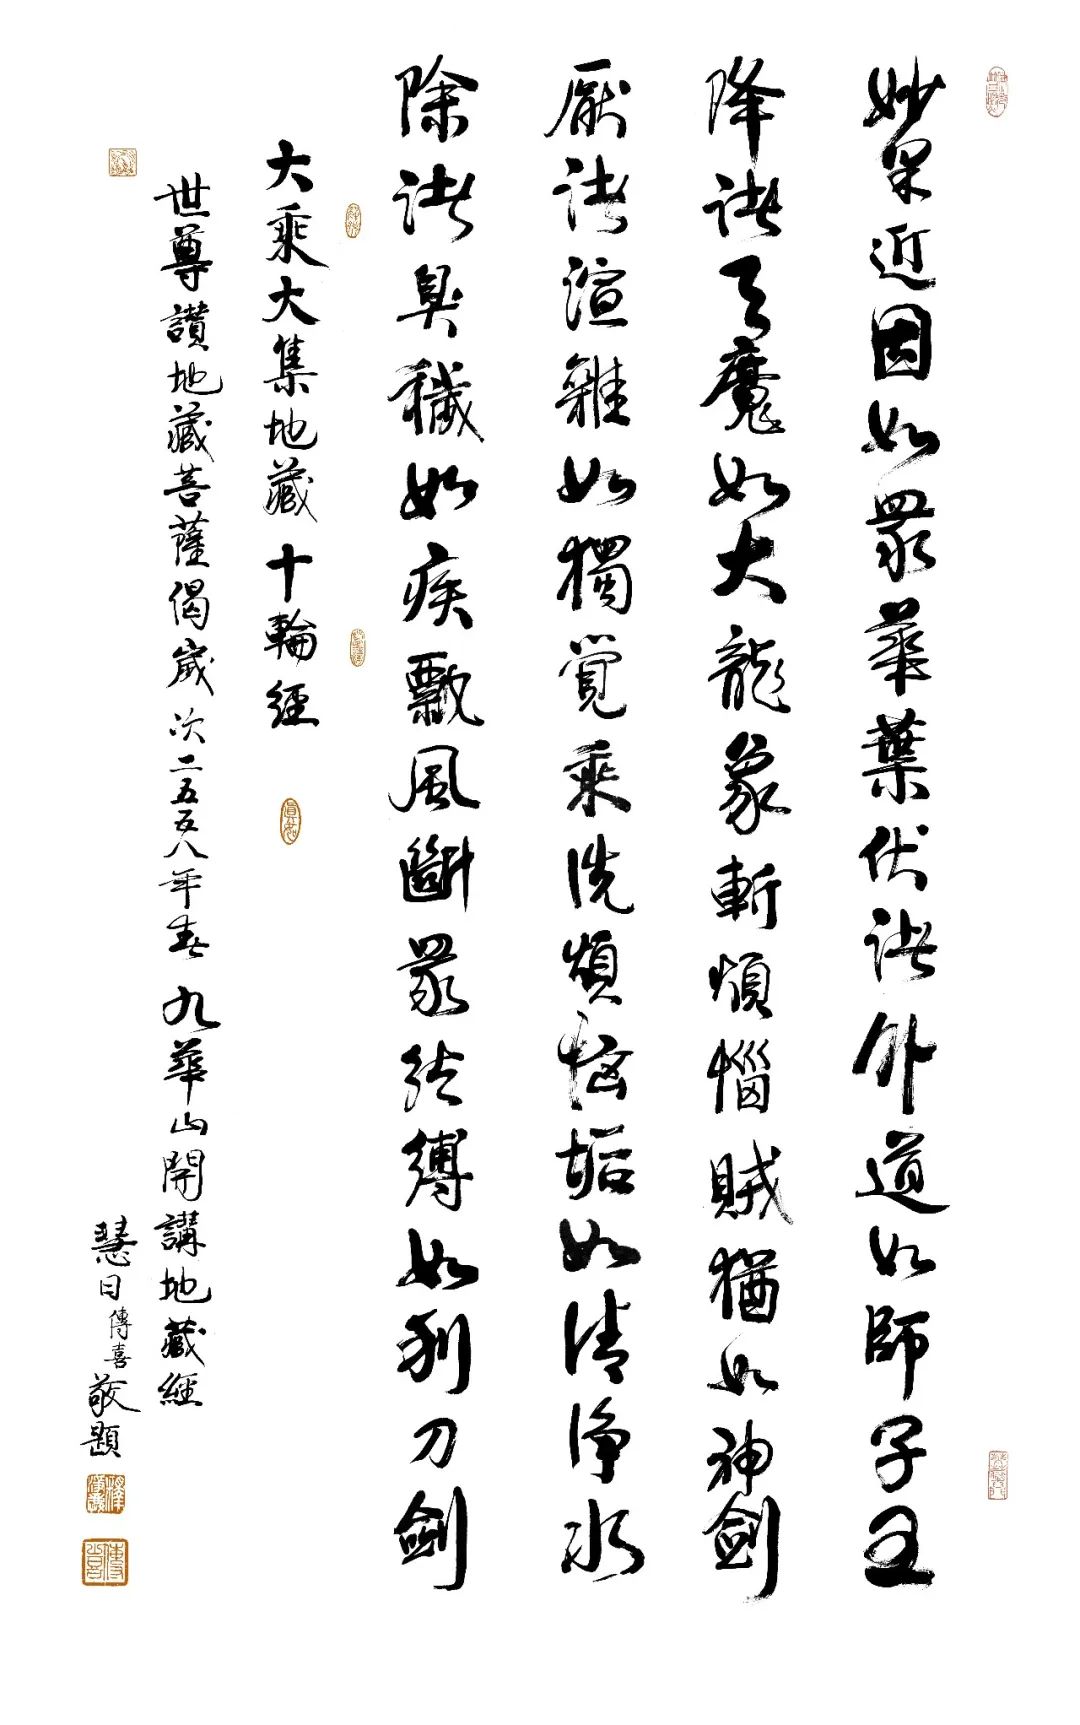 妙果近因如眾華葉伏諸外道如師子王
降諸天魔如大龍象斬煩惱賊猶如神劍
厭諸諠雜如獨覺乘洗煩惱垢如清淨水
除諸臭穢如疾飄風斷眾結縛如利刀劍
大乘大集地藏十輪經
世尊讚地藏菩薩偈歲次二五五八年春 九華山開講地藏經
慧日傳喜敬題